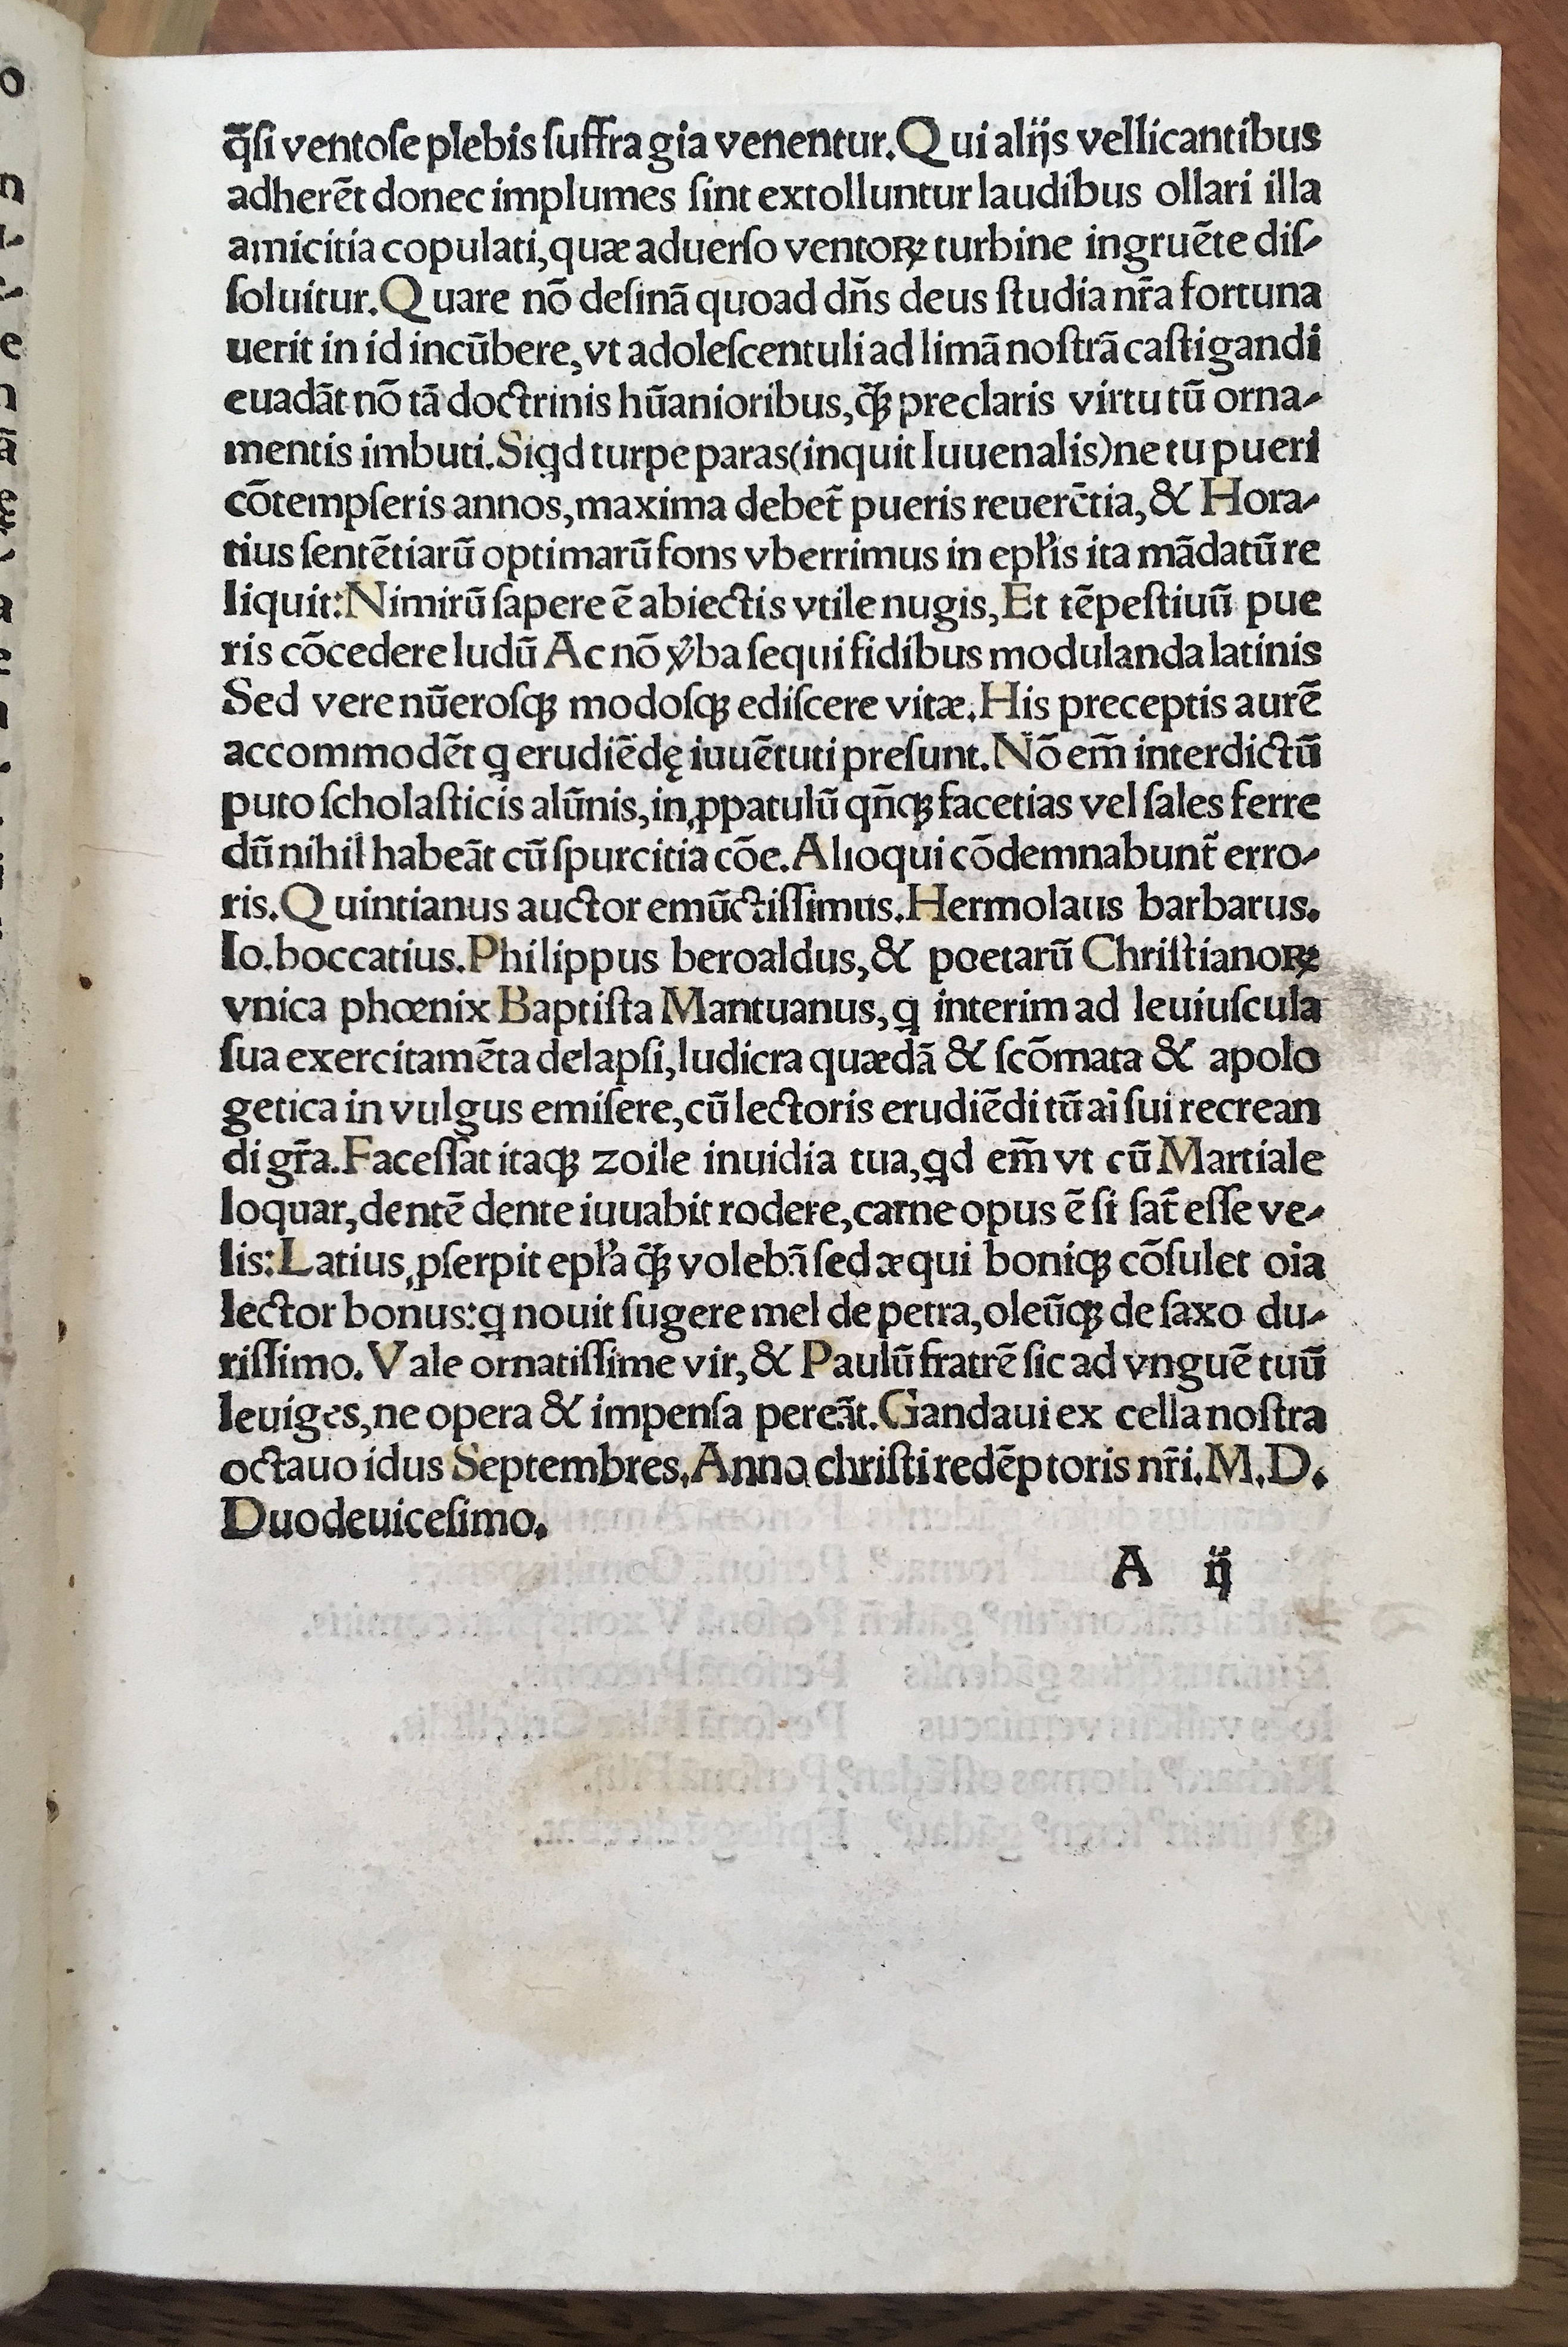 q̄si ventose plebis suffragia venentur. Qui alijs vellicantibus
adherēt donec implumes sint extolluntur laudibus ollari illa
amicitia copulati, quæ aduerso ventoꝝ turbine ingruēte dis-
soluitur. Quare nō desinā quoad dn̄s deus studia nr̄a fortuna
uerit in id incūbere, vt adolescentuli ad limā nostrā castigandi
euadāt nō tā doctrinis hūanioribus, q̄ꝫ preclaris virtutū orna-
mentis imbuti. Siqd turpe paras (inquit Iuuenalis) ne tu pueri
cōtempseris annos, maxima debet̄ pueris reuerētia, & Hora-
tius sentētiarū optimarū fons vberrimus in epl'is ita mādatū re
liquit: Nimirū sapere ē abiectis vtile nugis, Et tēpestiuū pue
ris cōcedere ludū Ac nō v̓ba sequi fidibus modulanda latinis
Sed vere nūerosqꝫ modosqꝫ ediscere vitæ. His preceptis aurē
accommodēt q erudiēdę iuuētuti presunt. Nō em̄ interdictū
puto scholasticis alūnis, in ꝓpatulū qn̄qꝫ facetias vel sales ferre
dū nihil habeāt cū spurcitia cōe. Alioqui cōdemnabunt̄ erro-
ris. Quintianus auctor emūctissimus. Hermolaus barbarus.
Io. boccatius. Philippus beroaldus, & poetarū Christianoꝝ
vnica phœnix Baptista Mantuanus, q interim ad leuiuscula
sua exercitamēta delapsi, ludicra quædā & scōmata & apolo
getica in vulgus emisere, cū lectoris erudiēdi tū ai̅ sui recrean
di gr̄a. Facessāt itaqꝫ zoile inuidia tua, qd em̄ vt cū Martiale
loquar, dentē dente iuuabit rodere, carne opus ē si sat̄ esse ve-
lis: Latius ꝓserpit epl'a q̄ꝫ volebā sed æqui boniqꝫ cōsulet oia
lector bonus: q nouit sugere mel de petra, oleūqꝫ de saxo du-
rissimo. Vale ornatissime vir, & Paulū fratrē sic ad vnguē tuū
leuiges, ne opera & impensa pereāt. Gandaui ex cella nostra
octauo idus Septembres. Anno christi redēptoris nr̄i. M. D.
Duodeuicesimo.
A ij